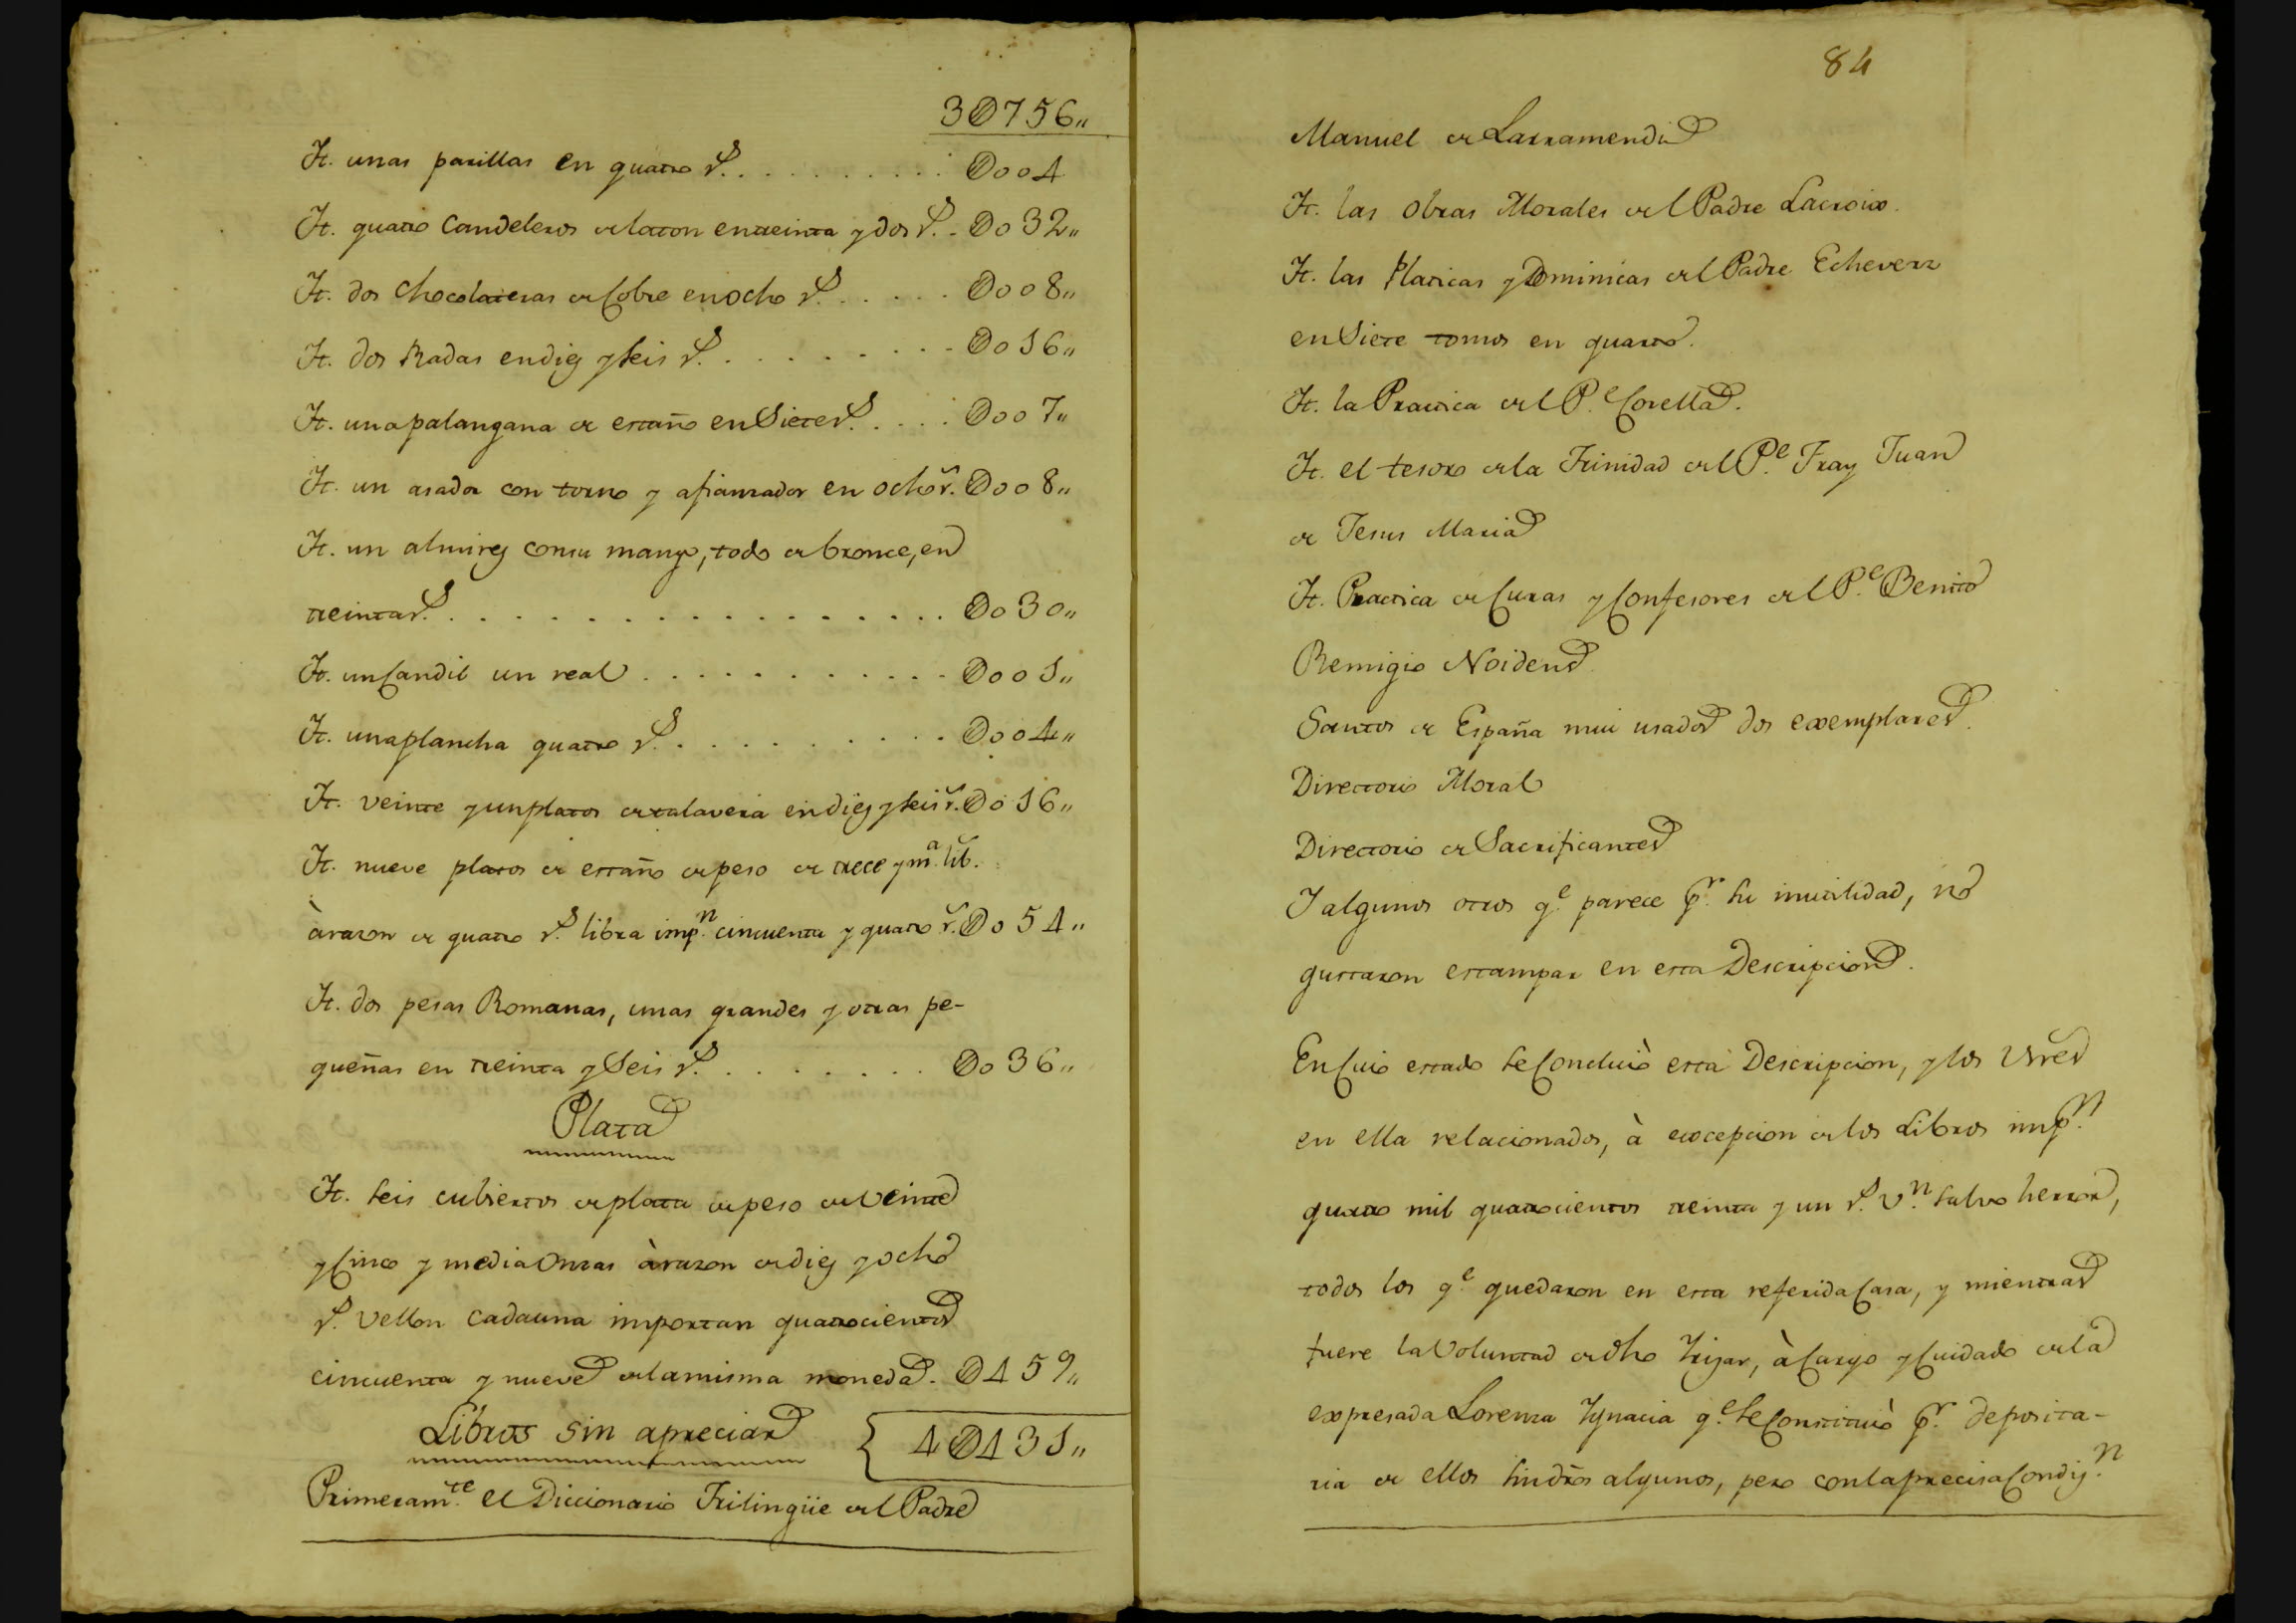 3U756„
It. unas parillas en quatro r.s . . . . . . . . . U004
It. quatro Candeleros de laton en treinta y dos r.s - U032„
It. dos Chocolateras de Cobre en ocho r.s . . . . . U008„
It. dos Radas en diez y seis r.s . . . . . . . . . U016„
It. una palangana de estaño en Siete r.s . . . . U007„
It. un asador con torno y afianzador en ocho r.s U008„
It. un almirez con su mango, todo de bronce, en
treinta r.s . . . . . . . . . . . . . . . . . . U030„
It. un Candil un real . . . . . . . . . . . . U001„
It. una plancha quatro r.s . . . . . . . . . . U004„
It. veinte y un platos de talavera en diez y seis r.s U016„
It. nueve platos de estaño de peso de trece y m.a lib.
à razon de quatro r.s libra imp.n cincuenta y quatro r.s U054„
It. dos pesas Romanas, unas grandes y otras pe-
queñas en treinta y Seis r.s . . . . . . . . U036„
Plata
It. seis cubiertos de plata de peso de veinte
y Cinco y media Onzas à razon de diez y ocho
r.s Vellon cada una importan quatrocientos
cincuenta y nueve de la misma moneda. U459„
Libros sin apreciar { 4U431„
Primeram.te el Diccionario Trilingüe del Padre
84
Manuel de Larramendi
It. las Obras Morales del Padre Lacroix.
It. las Platicas y Dominicas del Padre Echeverz
en Siete tomos en quarto.
It. la Practica del P.e Corella.
It. el tesoro de la Trinidad del P.e Fray Juan
de Jesus Maria
It. Practica de Curas y Confesores del P.e Benito
Remigio Noidens
Santos de España mui usados dos exemplares.
Directorio Moral
Directorio de Sacrificantes
Y algunos otros q.e parece p.r su inutilidad, no
gustaron estampar en esta Descripcion.
En Cuio estado se Concluiò esta Descripcion, y los vres
en ella relacionados, à excepcion de los Libros imp.n
quatro mil quatrocientos treinta y un r.s v.n salvo herror,
todos los q.e quedaron en esta referida Casa, y mientras
fuere la Voluntad de dho Yrijar, à Cargo y Cuidado de la
expresada Lorenza Ygnacia q.e se Constituiò p.r deposita-
ria de ellos sin dros algunos, pero con la precisa Condiz.n